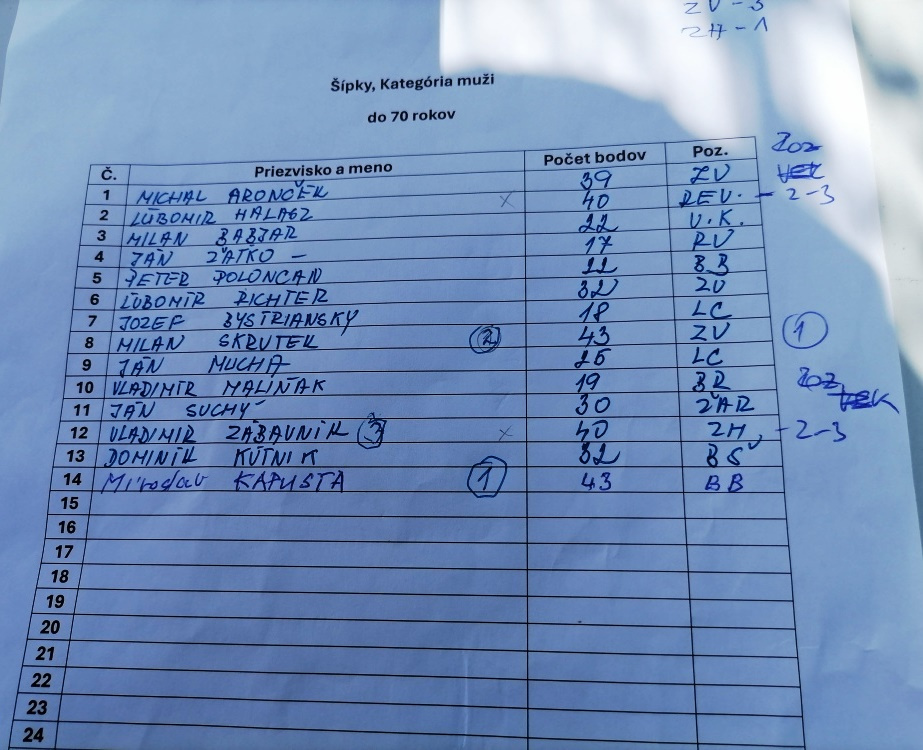 ZV - 3
ZH - 1
Šípky, Kategória muži
do 70 rokov
Č. Priezvisko a meno Počet bodov Poz.
1 MICHAL ARONČEK 39 ZV
2 ĽUBOMÍR x 40 REV. - 2-3
3 MILAN BABJAR 22 V.K.
4 JÁN ŽATKO - 17 RV
5 PETER POLONCAN 22 BB
6 ĽUBOMÍR RICHTER 32 ZV
7 JOZEF BYSTRIANSKY 18 LC
8 MILAN SKRUTEK 2 43 ZV 1
9 JÁN MUCHA LC
10 VLADIMÍR MALINAK 19 BR
11 JÁN SUCHÝ 30 ŽAR
12 VLADIMÍR ZÁBAVNÍK 3 x 40 ZH - 2-3
13 DOMINIK KÚTNIK 32 BŠ
14 Miroslav KAPUSTA 1 43 BB
15
16
17
18
19
20
21
22
23
24